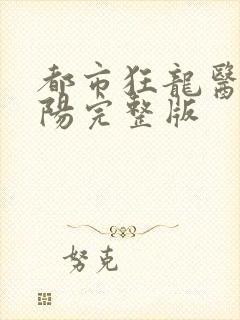 都市狂龍醫
陽完整版
努克